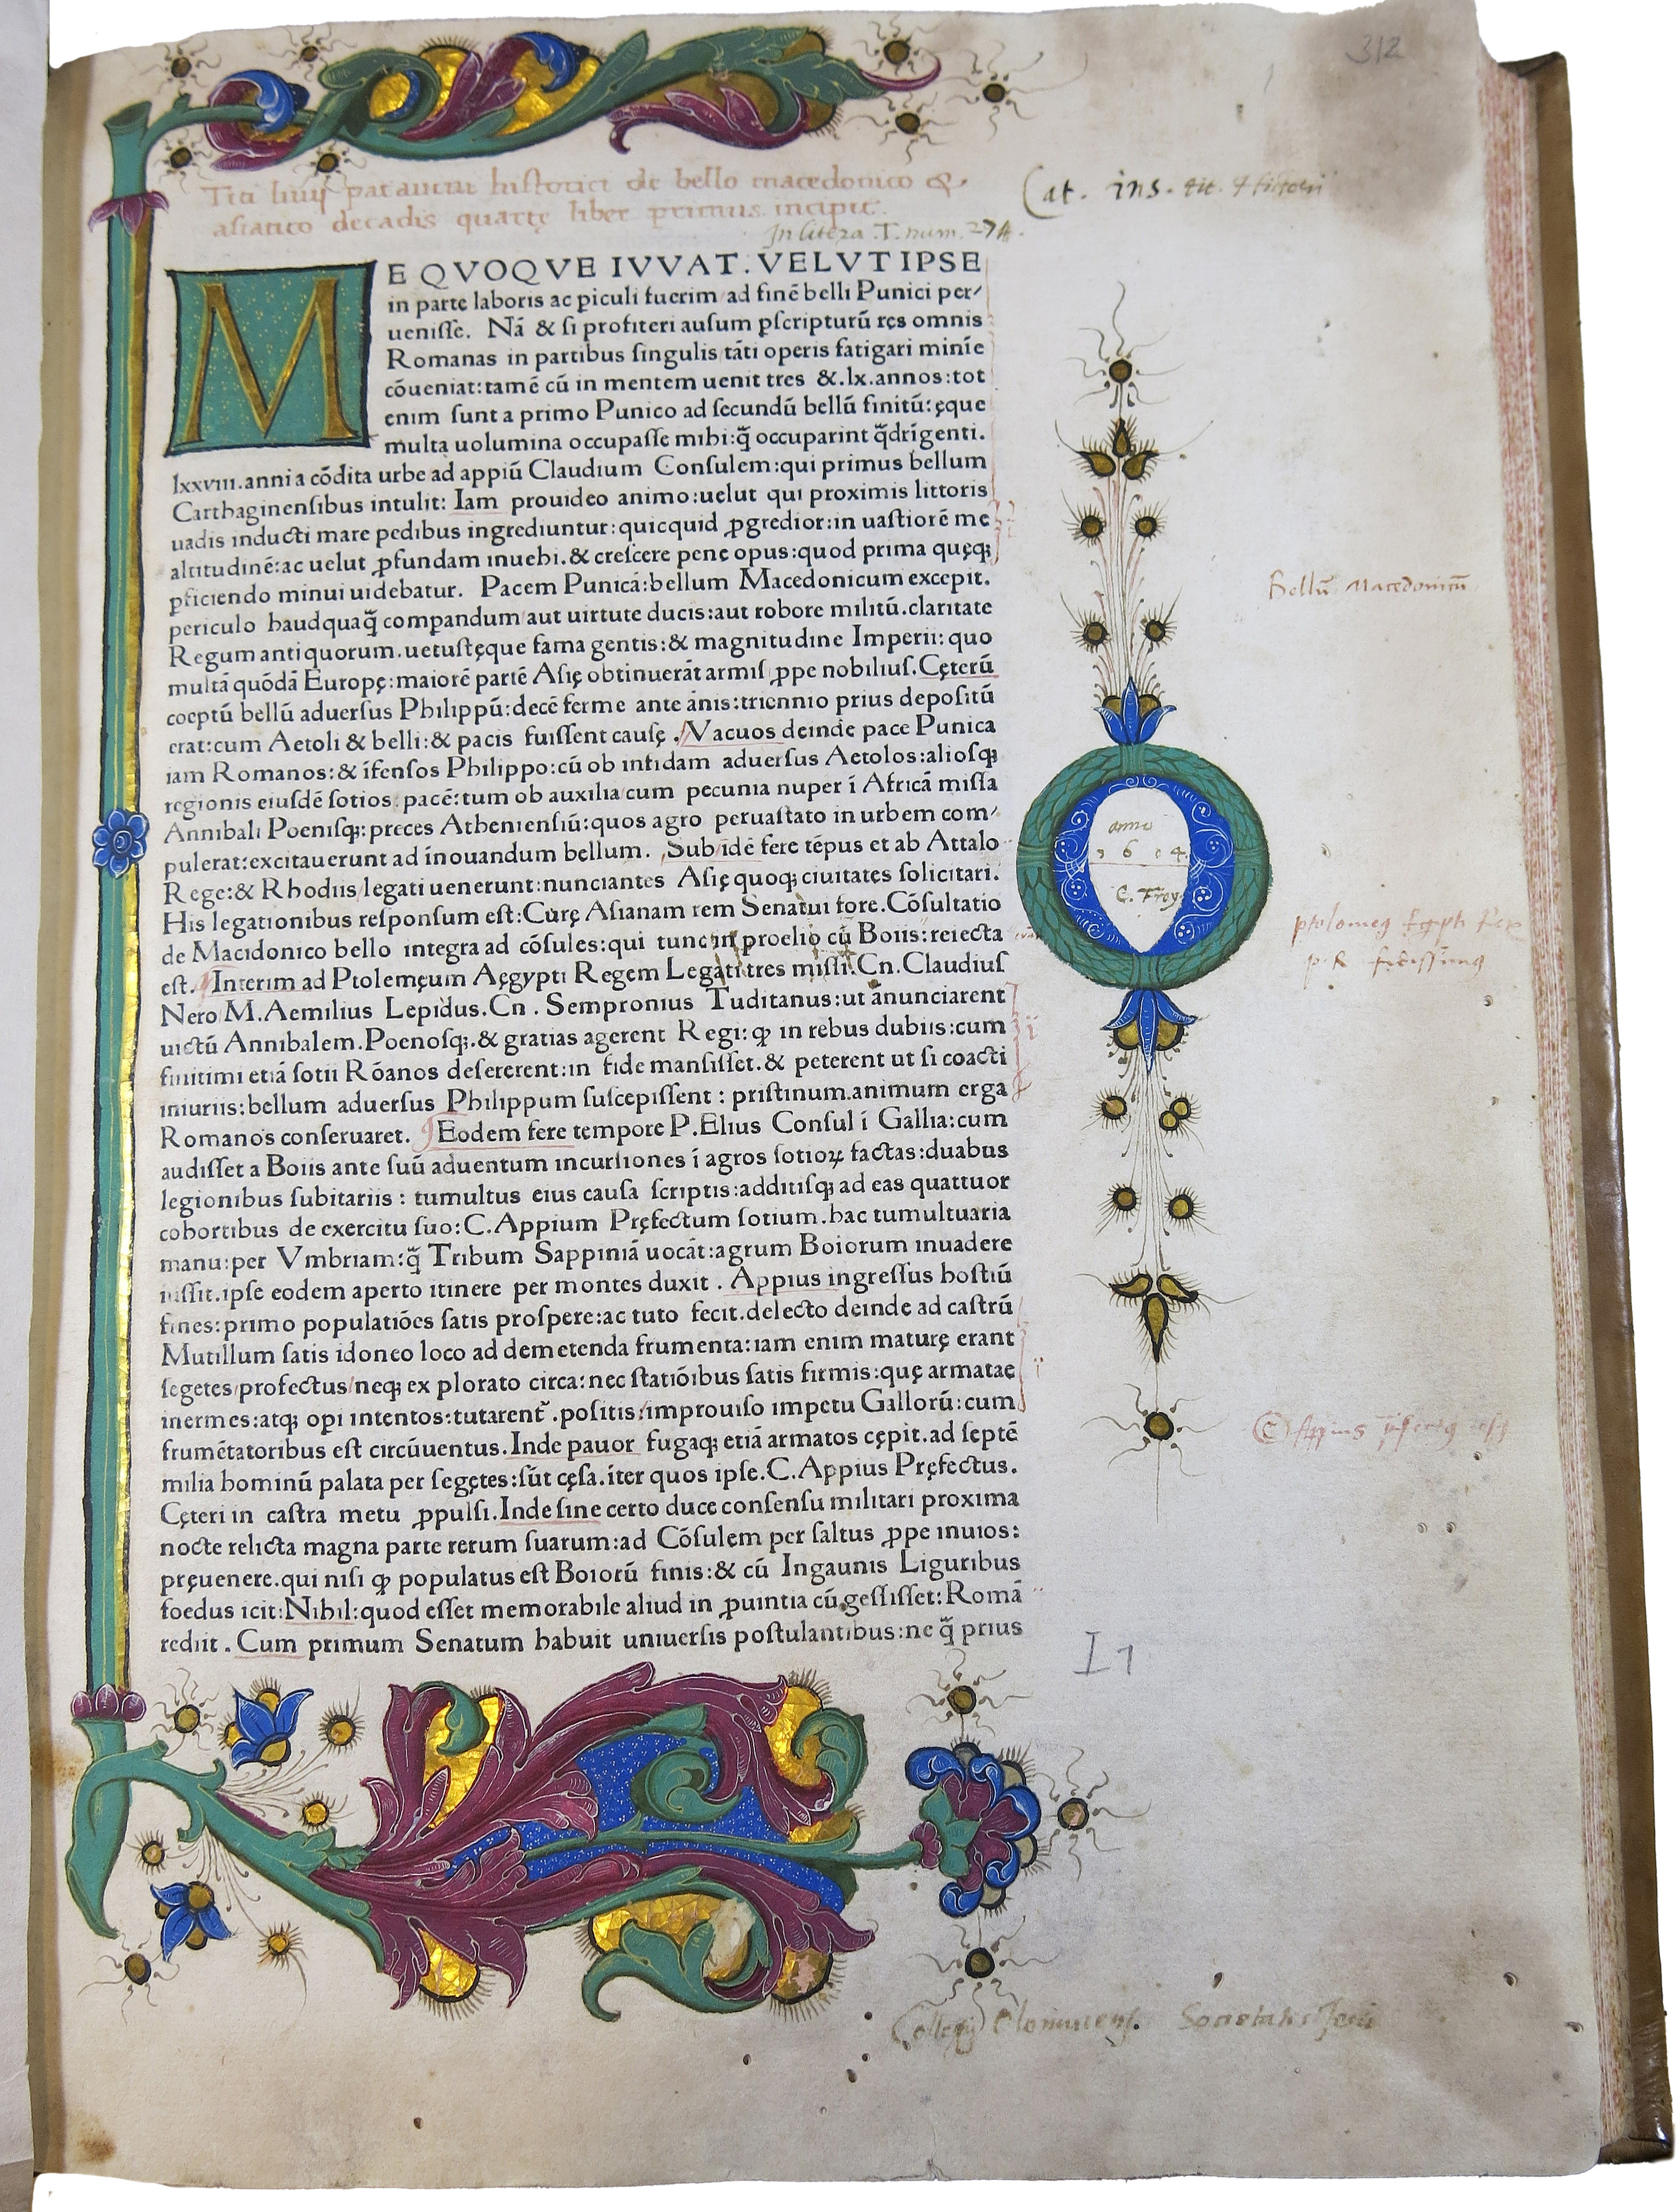 312
Titi liuij patauini historici de bello macedonico &
asiatico decadis quartę liber primus incipit.
Cat. ins. tit.
In litera .T. num. 274.
ME QVOQVE IVVAT. VELVT IPSE
in parte laboris ac ꝑiculi fuerim ad finē belli Punici per⸗
ueniſſe. Nā & ſi profiteri auſum ꝑſcripturū ręs omnis
Romanas in partibus ſingulis tāti operis fatigari minīe
cōueniat: tamē cū in mentem uenit tres &.lx.annos:tot
enim ſunt a primo Punico ad ſecundū bellū finitū:ęque
multa uolumina occupaſſe mihi:q̄ occuparint q̄drīgenti.
lxxviii.anni a cōdita urbe ad appiū Claudium Conſulem:qui primus bellum
Carthaginenſibus intulit: Iam prouideo animo:uelut qui proximis littoris
uadis inducti mare pedibus ingrediuntur:quicquid ꝓgredior:in uaſtiorē me
altitudinē:ac uelut ꝓfundam inuehi.& creſcere pene opus:quod prima quęqꝫ
ꝑficiendo minui uidebatur. Pacem Punicā:bellum Macedonicum excepit.
periculo haudquaq̄ comꝑandum aut uirtute ducis:aut robore militū.claritate
Regum antiquorum.uetuſtęque fama gentis:& magnitudine Imperii: quo
multā quōdā Europę:maiorē partē Aſię obtinuerāt armiſ ꝓpe nobiliuſ.Cęterū
coeptū bellū aduerſus Philippū:decē ferme ante ānis:triennio prius depoſitū
erat:cum Aetoli & belli:& pacis fuiſſent cauſę . Vacuos deinde pace Punica
iam Romanos:& īfenſos Philippo:cū ob infidam aduerſus Aetolos:alioſqꝫ
regionis eiuſdē ſotios pacē:tum ob auxilia cum pecunia nuper ī Africā miſſa
Annibali Poeniſqꝫ:preces Athenienſiū:quos agro peruaſtato in urbem com⸗
pulerat:excitauerunt ad īnouandum bellum. Sub idē fere tēpus et ab Attalo
Rege:& Rhodiis legati uenerunt:nunciantes Aſię quoqꝫ ciuitates ſolicitari.
His legationibus reſponſum eſt:Curę Aſianam rem Senatui fore.Cōſultatio
de Macidonico bello integra ad cōſules:qui tunc in proelio cū Boiis:reiecta
eſt. Interim ad Ptolemęum Aęgypti Regem Legati tres miſſi.Cn.Claudiuſ
Nero M.Aemilius Lepidus.Cn . Sempronius Tuditanus:ut ānunciarent
uictū Annibalem.Poenoſqꝫ.& gratias agerent Regi: ꝙ in rebus dubiis:cum
finitimi etiā ſotii Rōanos deſererent:in fide manſiſſet.& peterent ut ſi coacti
iniuriis:bellum aduerſus Philippum ſuſcepiſſent : priſtinum.animum erga
Romanos conſeruaret. Eodem fere tempore P.Elius Conſul ī Gallia:cum
audiſſet a Boiis ante ſuū aduentum incurſiones ī agros ſotioꝝ factas:duabus
legionibus ſubitariis : tumultus eius cauſa ſcriptis:additiſqꝫ ad eas quattuor
cohortibus de exercitu ſuo:C.Appium Pręfectum ſotium.hac tumultuaria
manu:per Vmbriam:q̄ Tribum Sappiniā uocāt:agrum Boiorum inuadere
iuſſit.ipſe eodem aperto itinere per montes duxit . Appius ingreſſus hoſtiū
fines:primo populatiōes ſatis proſpere:ac tuto fecit.delecto deinde ad caſtrū
Mutillum ſatis idoneo loco ad demetenda frumenta:iam enim maturę erant
ſegetes profectus neqꝫ ex plorato circa:nec ſtatiōibus ſatis firmis:quę armatae
inermes:atqꝫ opi intentos:tutarent᷑.poſitis:improuiſo impetu Gallorū:cum
frumētatoribus eſt circūuentus.Inde pauor fugaqꝫ etiā armatos cępit.ad ſeptē
milia hominū palata per ſegętes:ſūt cęſa.īter quos ipſe.C.Appius Pręfectus.
Cęteri in caſtra metu ꝓpulſi.Inde ſine certo duce conſenſu militari proxima
nocte relicta magna parte rerum ſuarum:ad Cōſulem per ſaltus ꝓpe inuios:
pręuenere.qui niſi ꝙ populatus eſt Boiorū finis:& cū Ingaunis Liguribus
foedus icit:Nihil:quod eſſet memorabile aliud in ꝓuintia cū geſſiſſet:Romā
rediit . Cum primum Senatum habuit uniuerſis poſtulantibus:ne q̄ prius
Bellū Macedonicū
anno
1604.
E. Troy.
I1
Collegij Olomucens. Societatis Jesu